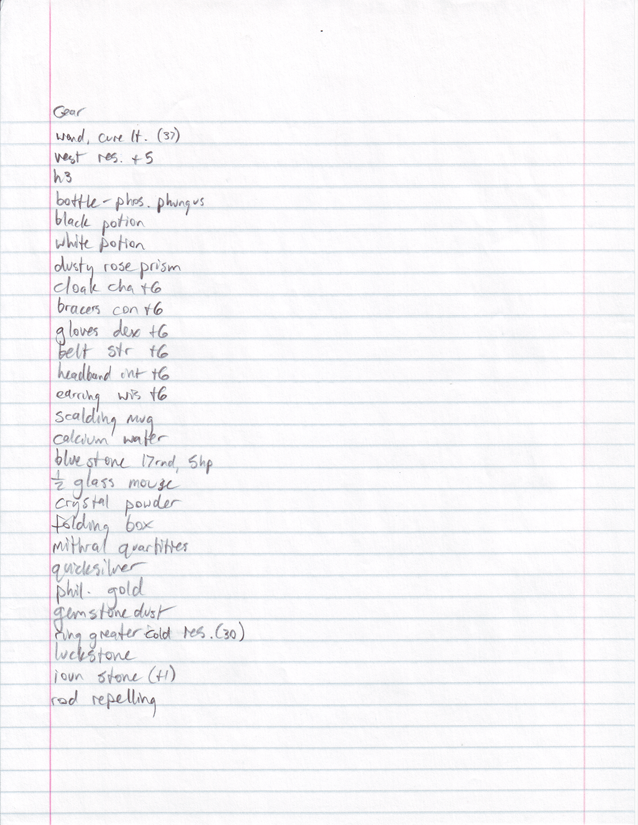 Gear
wand, cure lt. (37)
vest res. +5
h3
bottle - phos. phungus
black potion
white potion
dusty rose prism
cloak cha +6
bracers con +6
gloves dex +6
belt str +6
headband int +6
earring wis +6
scalding mug
calcium water
blue stone 17rnd, 5hp
½ glass mouse
crystal powder
folding box
mithral
quicksilver
phil. gold
gemstone dust
ring greater cold res. (30)
luckstone
ioun stone (+1)
rod repelling